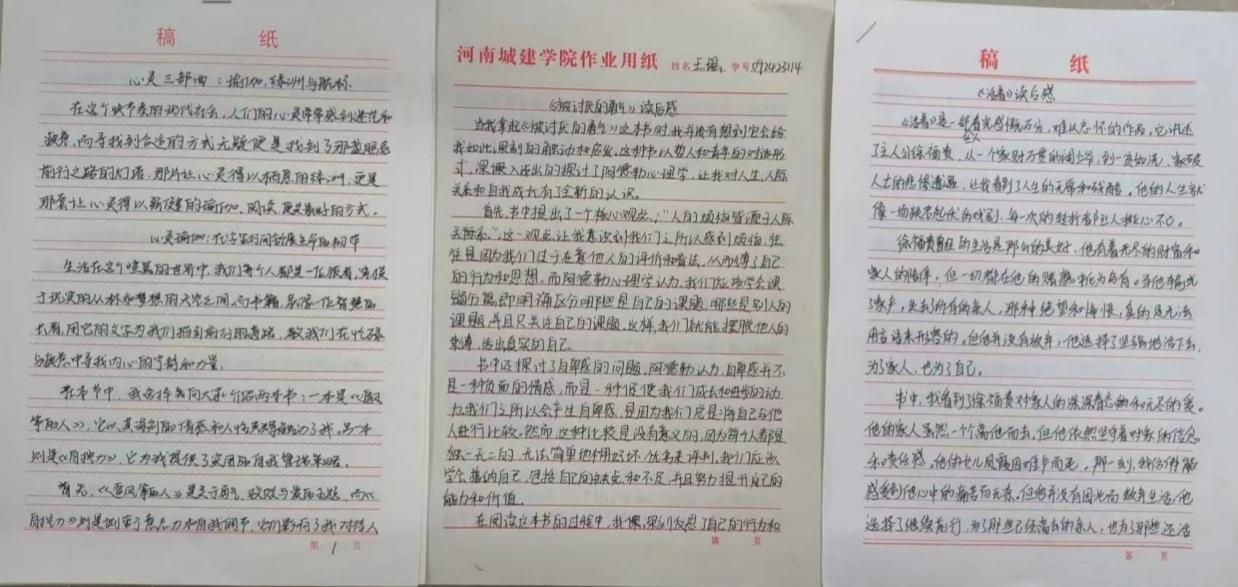 稿 纸
心灵三部曲：瑜伽、绿洲与航标
在这个快节奏的现代社会，人们的心灵常常感到迷茫和
疲惫，而寻找到合适的方式无疑便是找到了那盏照亮
前行之路的灯塔，那片让心灵得以栖息的绿洲，更是
那套让心灵得以舒缓的瑜伽。阅读，便是最好的方式。
心灵瑜伽：在字里行间舒展生命的韧带
生活在这个喧嚣的世界中，我们每个人都是一位旅者，穿梭
于现实的丛林和梦想的天空之间，而书籍，就像一位智慧的
长者，用它的文字为我们指引前行的道路，教我们在忙碌
与疲惫中寻找内心的宁静和力量。
在本节中，我选择着向大家介绍两本书：一本是《追风
筝的人》，它以其深刻的情感和人性光辉触动了我，另一本
则是《自控力》，它为我提供了实用的自我管理策略。
首先，《追风筝的人》是关于勇气、救赎与爱的主题，而《
自控力》则是侧重于意志力和自我调节，它们影响了我对待人
第 1 页
河南城建学院作业用纸 姓名 王 学号 092423114
《被讨厌的勇气》读后感
当我拿起《被讨厌的勇气》这本书时，我并没有想到它会给
我如此深刻的触动和启发。这种书以哲人和青年的对话形
式，深入浅出的探讨了阿德勒心理学，让我对人生、人际
关系和自我成长有了全新的认识。
首先，书中提出了一个核心观点：“人的烦恼皆源于人际
关系”。这一观点让我意识到我们之所以感到烦恼，往
往是因为我们过于在意他人的评价和看法，从而束缚了自己
的行为和思想，而阿德勒心理学认为，我们应该学会课
题分离，即明确区分哪些是自己的课题，哪些是别人的
课题，并且只关注自己的课题。这样，我们就能摆脱他人的
束缚，活出真实的自己。
书中还探讨了自卑感的问题，阿德勒认为，自卑感并不
是一种负面的情感，而是一种促使我们成长和进步的动
力。我们之所以会产生自卑感，是因为我们总是将自己与他
人进行比较。然而，这种比较是没有意义的，因为每个人都是
独一无二的，无法简单地用好坏、优劣来评判，我们应该
学会接纳自己，包括自己的缺点和不足，并且努力提升自己的
能力和价值。
在阅读这本书的过程中，我深刻反思了自己的行为和
第 页
稿 纸
《活着》读后感
《活着》是一部看完感慨万分，难以忘怀的作品。它讲述
了主人公徐福贵，从一个家财万贯的阔少爷，到一贫如洗，家破
人亡的悲惨遭遇，让我看到了人生的无常和残酷。他的人生就
像一场跌宕起伏的戏剧，每一次的转折都让人揪心不已。
徐福贵曾经的生活是那么的美好，他有着无尽的财富和
家人的陪伴，但一切都在他的赌熬中化为乌有。当他输光
了家产，失去了所有的亲人，那种绝望和悔恨，真的是无法
用言语来形容的。但他并没有放弃，他选择了坚强地活下去，
为了家人，也为了自己。
书中，我看到了徐福贵对家人的深深眷恋和无尽的爱。
他的家人虽然一个个离他而去，但他依然坚守着对家的信念
和责任感，他的女儿凤霞因难产而死，那一刻，我仿佛能
感受到他心中的痛苦和无奈。但他并没有因此而放弃生活，他
选择了继续前行，为了那些已经离去的亲人，也为了那些还活
第 页